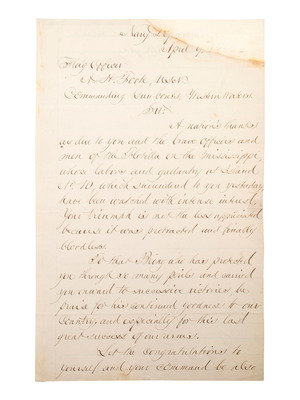 Navy
April 9
Flag Officer
A. H. Foote, USN
Commanding Gun boats, Western Waters
Sir.
A nation's thanks
are due to you and the brave officers and
men of the flotilla on the Mississippi,
whose labors and gallantry at Island
No. 10, which surrendered to you yesterday
have been watched with intense interest.
Your triumph is not the less appreciated
because it was protracted and finally
bloodless.
To that Being who has protected
you through so many perils and carried
you onward to successive victories be
praise for his continued goodness to our
Country, and especially for this last
great success of our arms.
Let the Congratulations to
yourself and your command be also